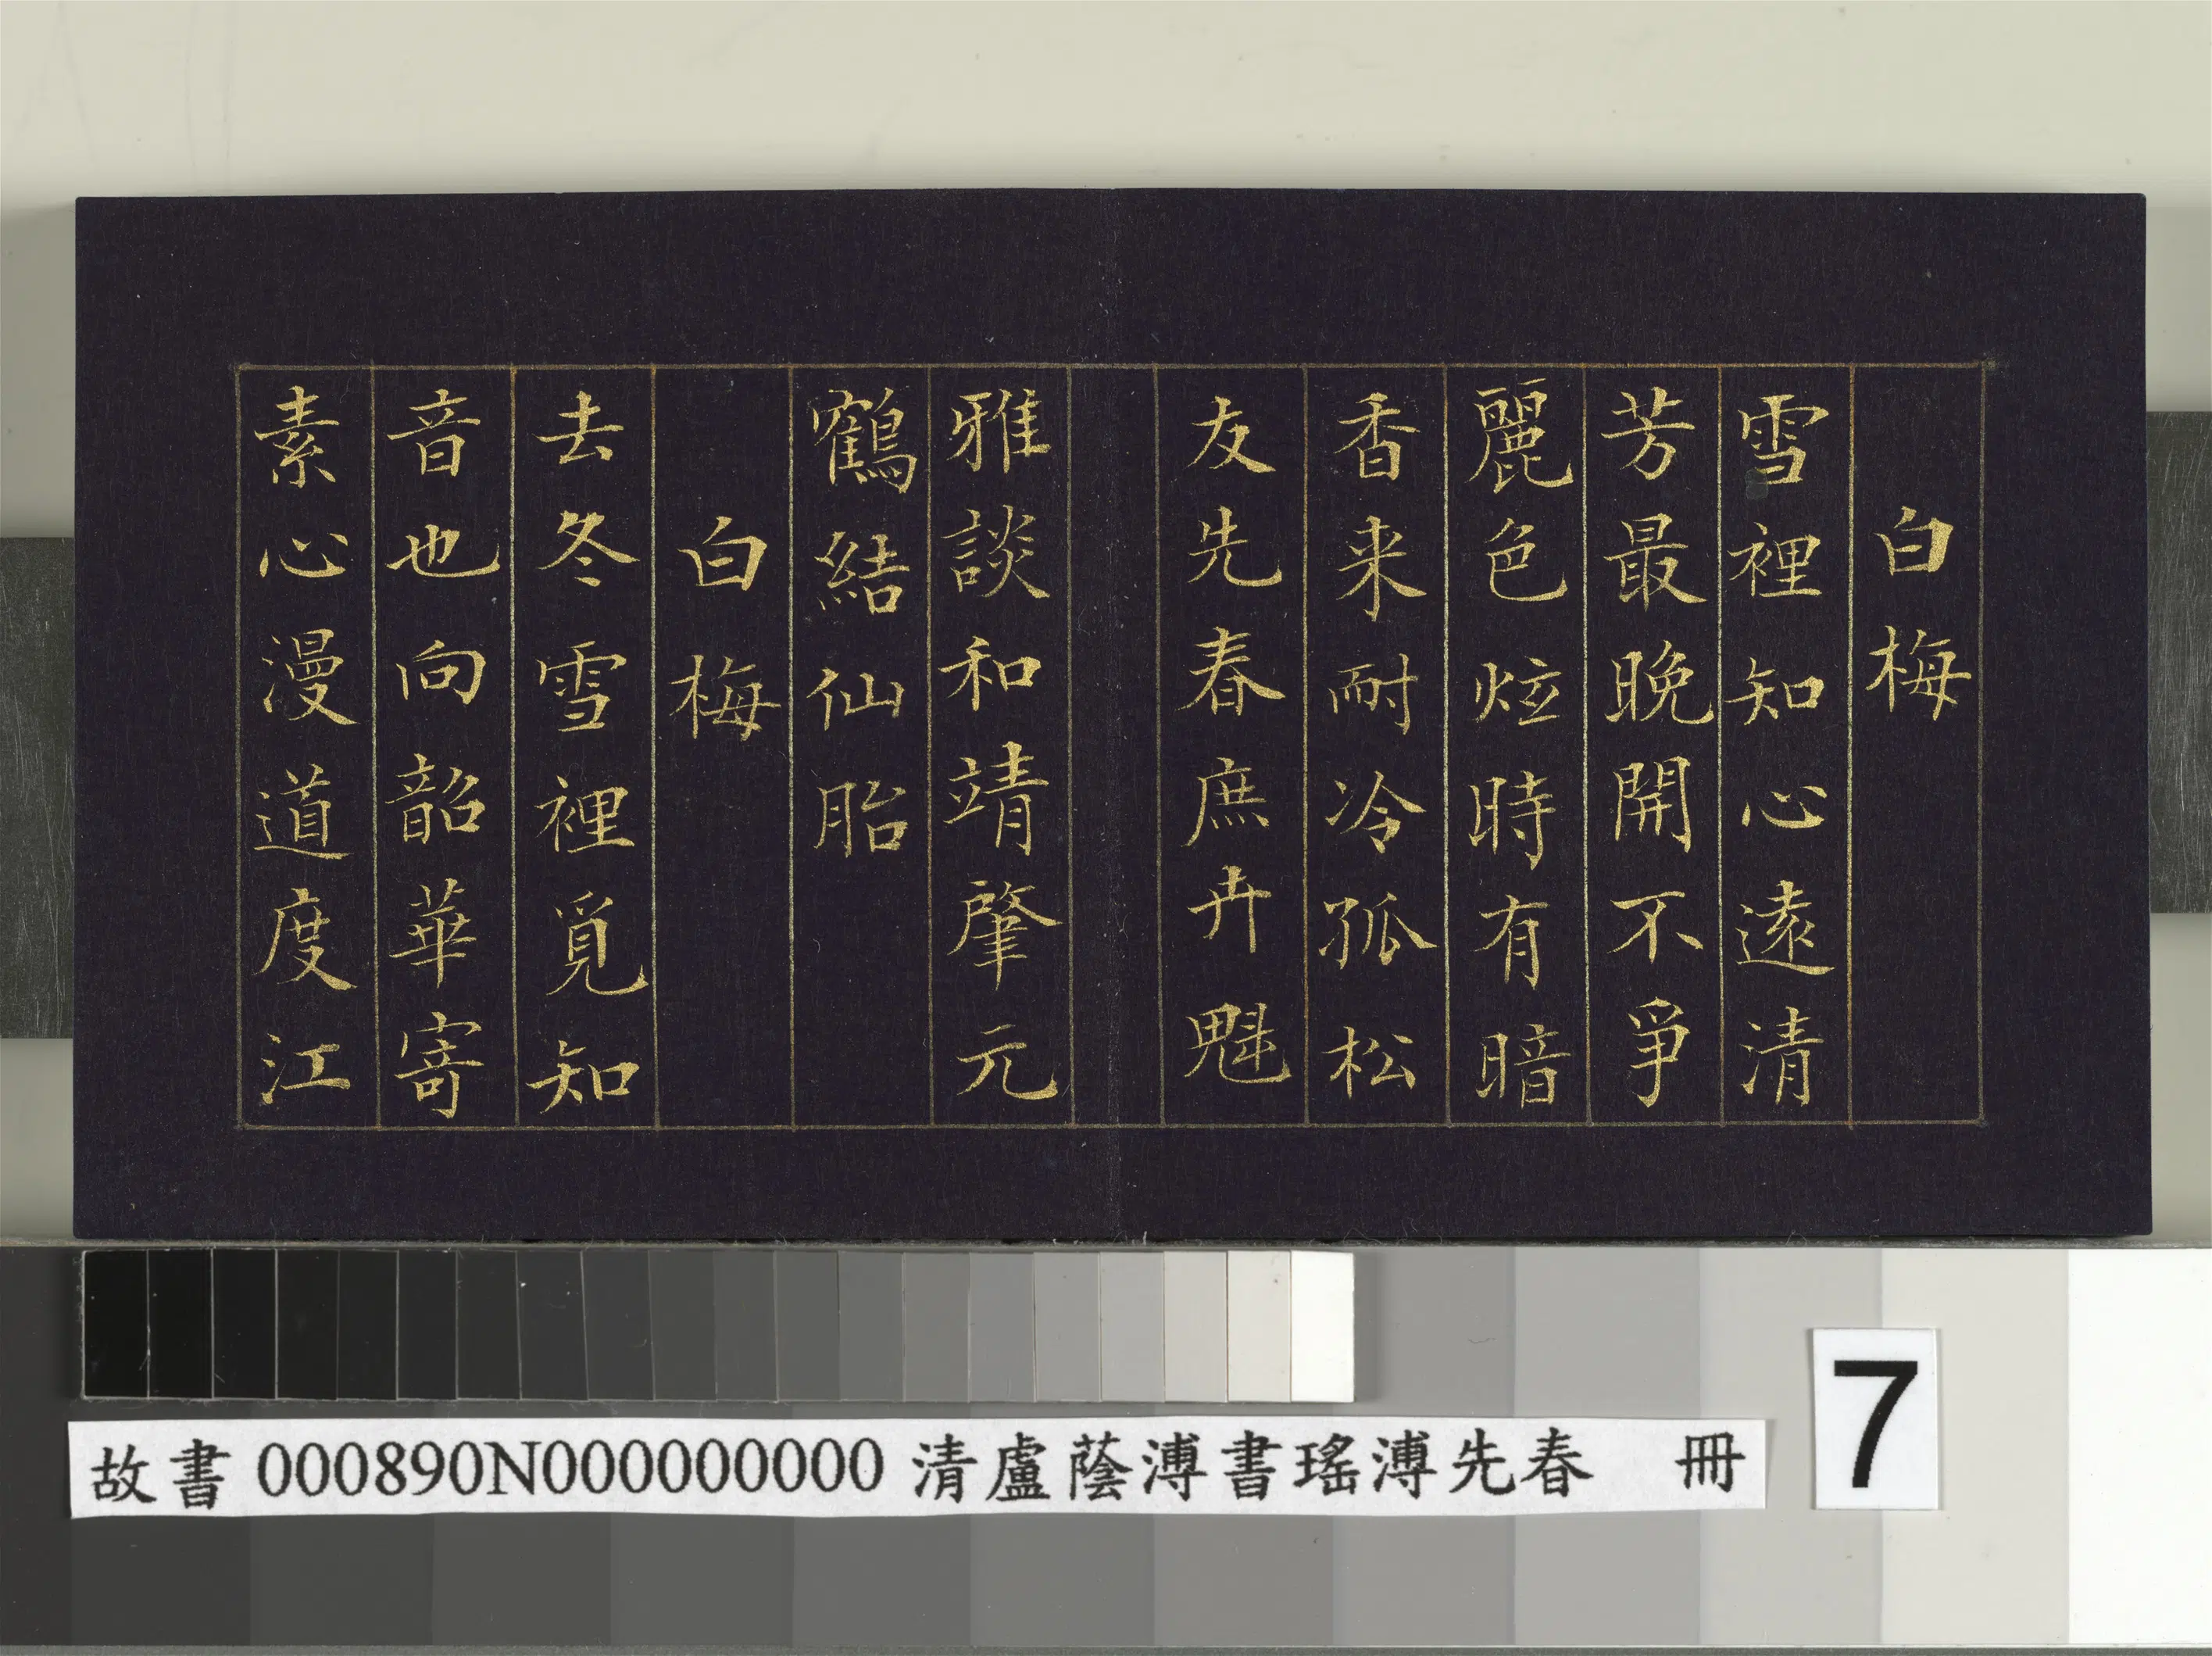 白梅
雪裡知心遠清
芳最晚開不爭
麗色炫時有暗
香来耐冷孤松
友先春庶卉魁
雅談和靖肇元
鶴結仙胎
白梅
去冬雪裡覓知
音也向韶華寄
素心漫道度江
故書 000890N000000000 清盧蔭溥書瑤溥先春 冊
7